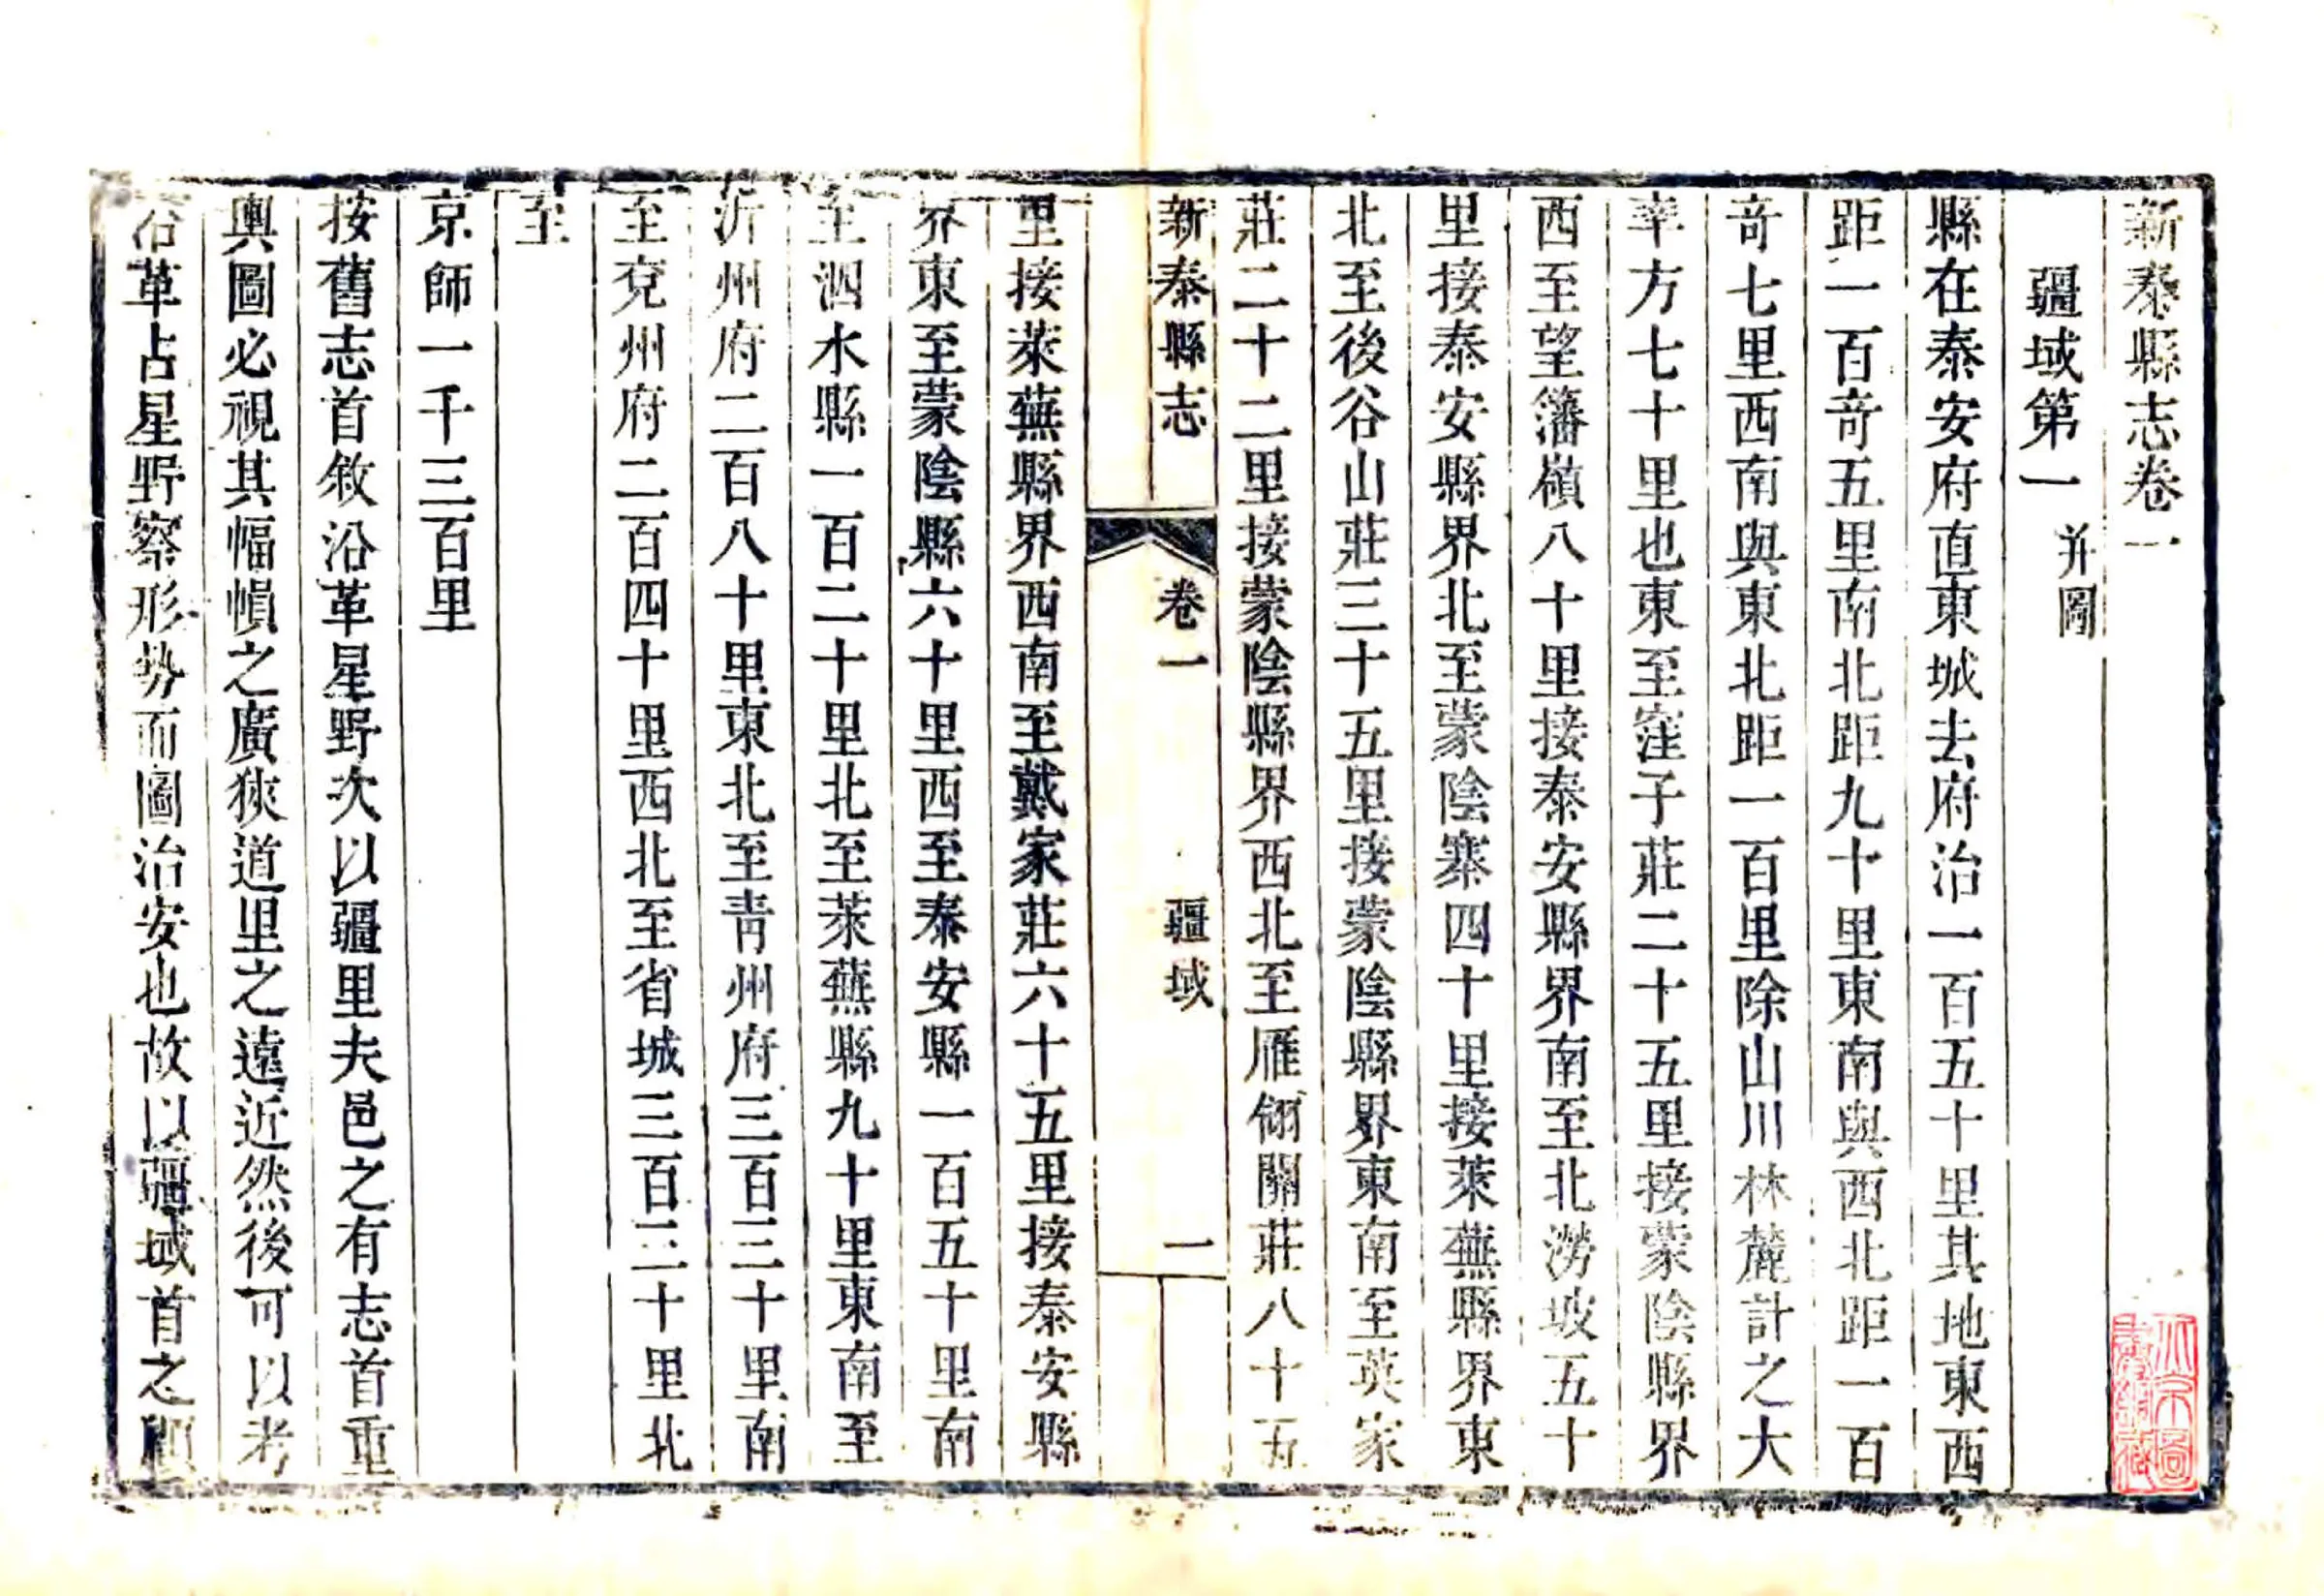 新泰縣志卷一
疆域第一 并圖
縣在泰安府直東城去府治一百五十里其地東西
距一百竒五里南北距九十里東南與西北距一百
竒七里西南與東北距一百里除山川林麓計之大
率方七十里也東至窪子莊二十五里接蒙陰縣界
西至望籓嶺八十里接泰安縣界南至北澇坡五十
里接泰安縣界北至蒙陰寨四十里接萊蕪縣界東
北至後谷山莊三十五里接蒙陰縣界東南至英家
莊二十二里接蒙陰縣界西北至雁翎關莊八十五
新泰縣志 卷一 疆域 一
里接萊蕪縣界西南至戴家莊六十五里接泰安縣
界東至蒙陰縣六十里西至泰安縣一百五十里南
至泗水縣一百二十里北至萊蕪縣九十里東南至
沂州府二百八十里東北至青州府三百三十里南
至兗州府二百四十里西北至省城三百三十里北
至
京師一千三百里
按舊志首敘沿革星野次以疆里夫邑之有志首重
輿圖必視其幅幀之廣狹道里之遠近然後可以考
沿革占星野察形勢而圖治安也故以疆域首之